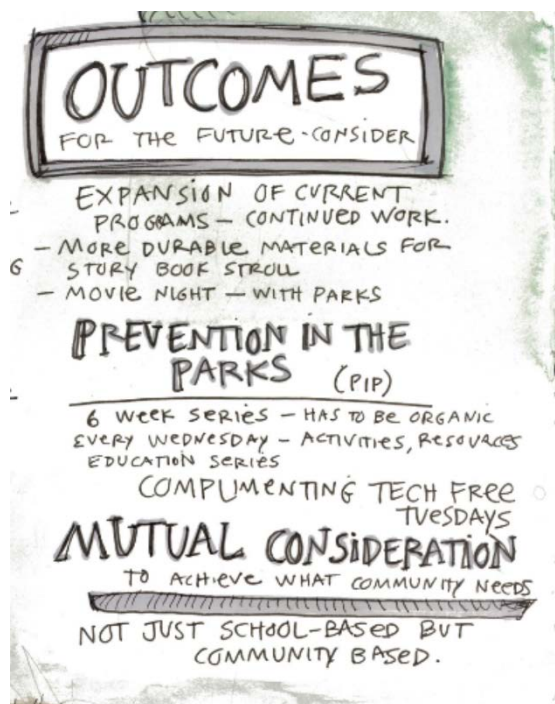 OUTCOMES
FOR THE FUTURE-CONSIDER
EXPANSION OF CURRENT
PROGRAMS - CONTINUED WORK.
- MORE DURABLE MATERIALS FOR
G STORY BOOK STROLL
- MOVIE NIGHT - WITH PARKS
PREVENTION IN THE
PARKS (PIP)
6 WEEK SERIES - HAS TO BE ORGANIC
EVERY WEDNESDAY - ACTIVITIES, RESOURCES
EDUCATION SERIES
COMPLIMENTING TECH FREE
TUESDAYS
MUTUAL CONSIDERATION
TO ACHIEVE WHAT COMMUNITY NEEDS
NOT JUST SCHOOL-BASED BUT
COMMUNITY BASED.